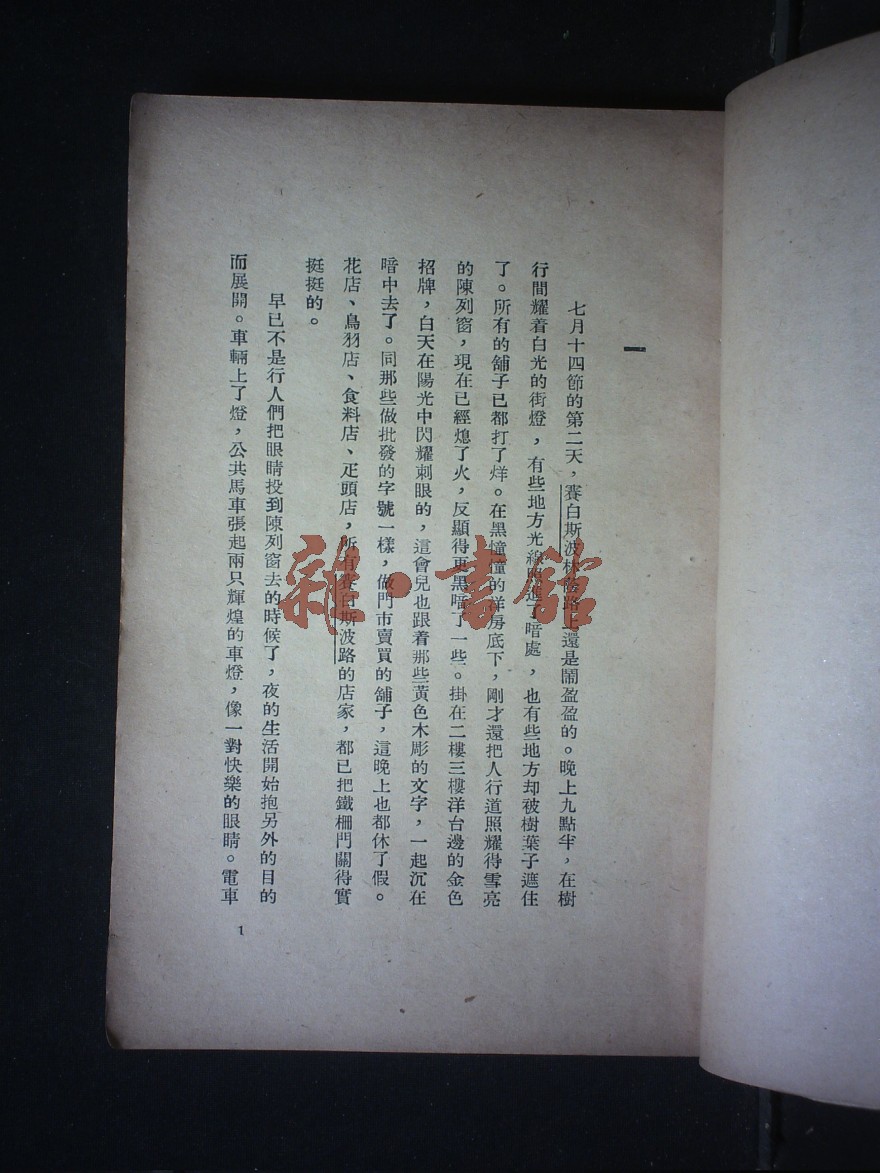 一
七月十四節的第二天，賽白斯波林蔭路上還是鬧盈盈的。晚上九點半，在樹
行間耀着白光的街燈，有些地方光線照進了暗處，也有些地方却被樹葉子遮住
了。所有的舖子已都打了烊。在黑憧憧的洋房底下，剛才還把人行道照耀得雪亮
的陳列窗，現在已經熄了火，反顯得更黑暗了一些。掛在二樓三樓洋台邊的金色
招牌，白天在陽光中閃耀刺眼的，這會兒也跟着那些黃色木彫的文字，一起沉在
暗中去了。同那些做批發的字號一樣，做門市賣買的舖子，這晚上也都休了假。
花店、鳥羽店、食料店、疋頭店，所有賽白斯波路的店家，都已把鐵柵門關得實
挺挺的。
早已不是行人們把眼睛投到陳列窗去的時候了，夜的生活開始抱另外的目的
而展開。車輛上了燈，公共馬車張起兩只輝煌的車燈，像一對快樂的眼睛。電車
1
雜·書館